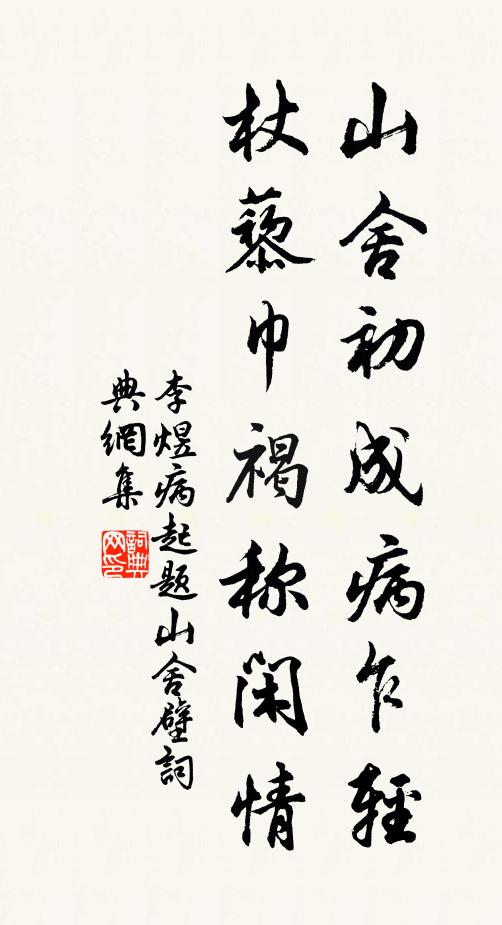 山舍初成病乍輕
杖藜巾褐称閑情
李煜病起题山舍壁詞
典網集
詞典网印